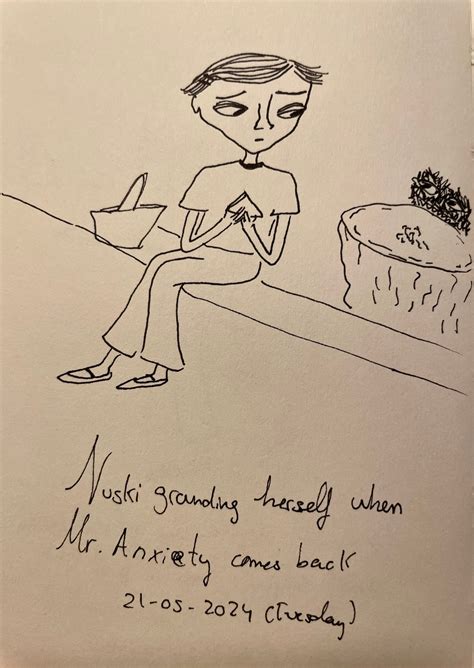 Nuski grounding herself when
Mr. Anxiety comes back
21-05-2024 (Tuesday)